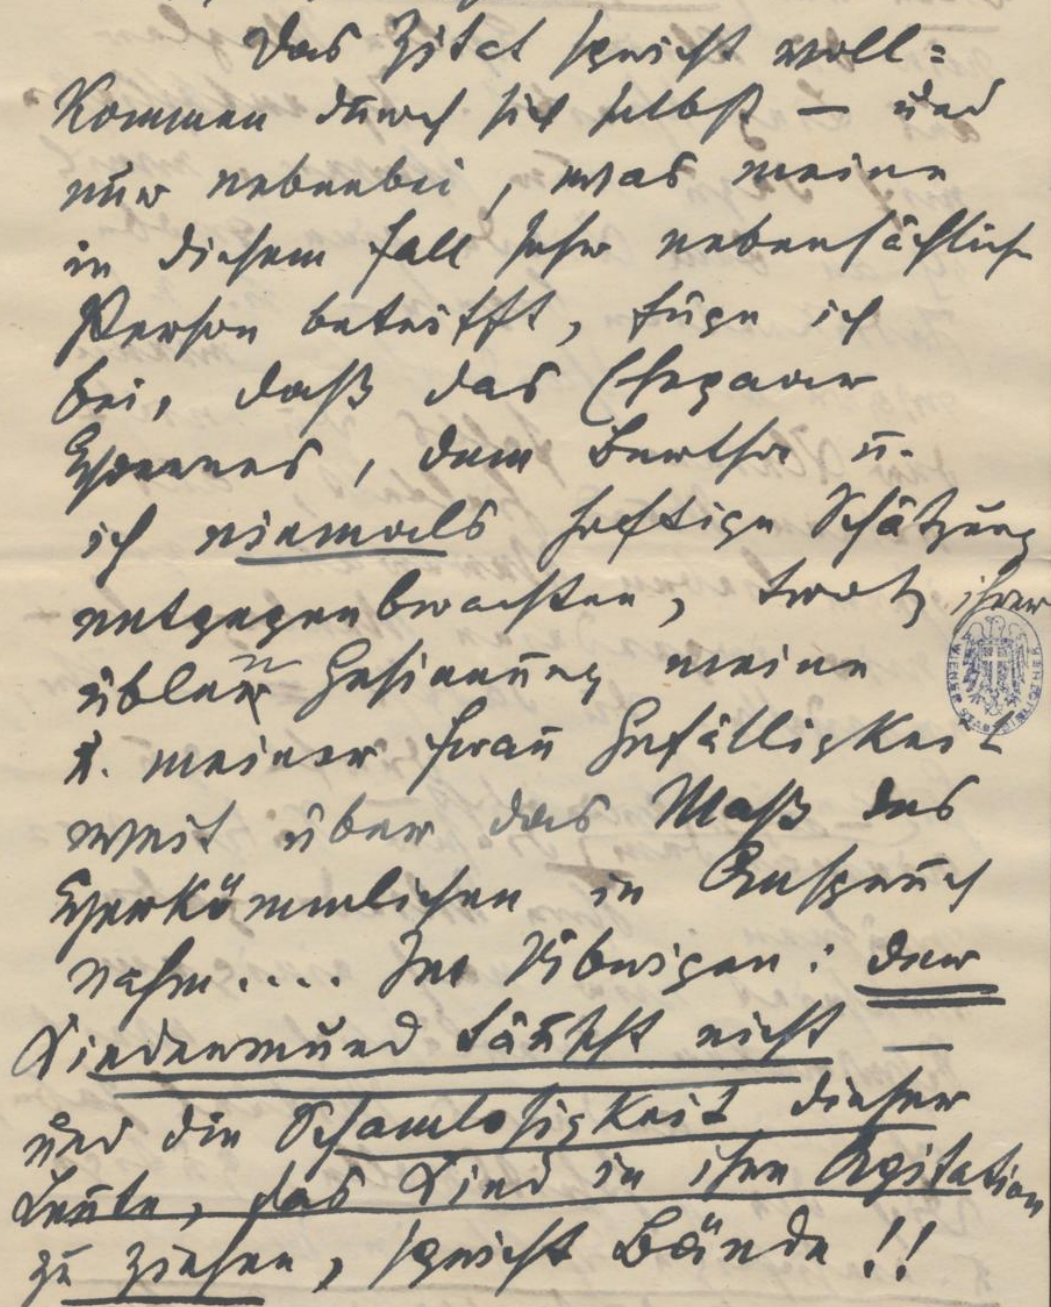 Das Zitat spricht voll=
kommen durch sich selbst — und
nur nebenbei, was meine
in diesem Fall sehr nebensächliche
Person betrifft, füge ich
bei, daß das Ehepaar
, dem Bertha u.
ich niemals heftige Schätzung
entgegenbrachten, trotz ihrer
üblen Gesinnung meine
u. meiner Frau Gefälligkeit
weit über das Maß des
Herkömmlichen in Anspruch
nahm.... Im Übrigen: der
Kindermund täuscht nicht —
und die Schamlosigkeit dieser
Leute, das Kind in ihre Agitation
zu ziehen, spricht Bände!!
WIENER STADTBIBLIOTHEK